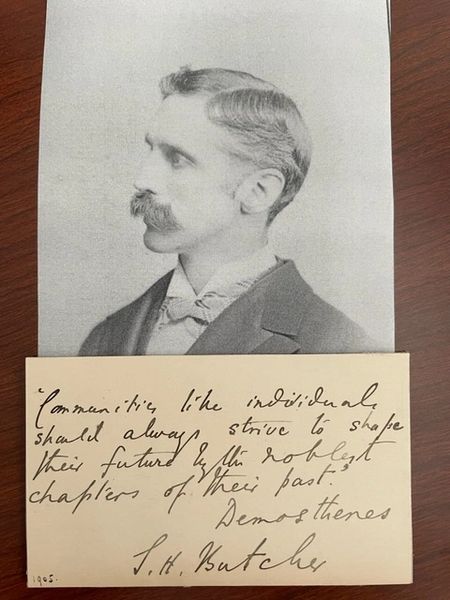 "Communities like individuals
should always strive to shape
their future by the noblest
chapters of their past."
Demosthenes
S. H. Butcher
1905.